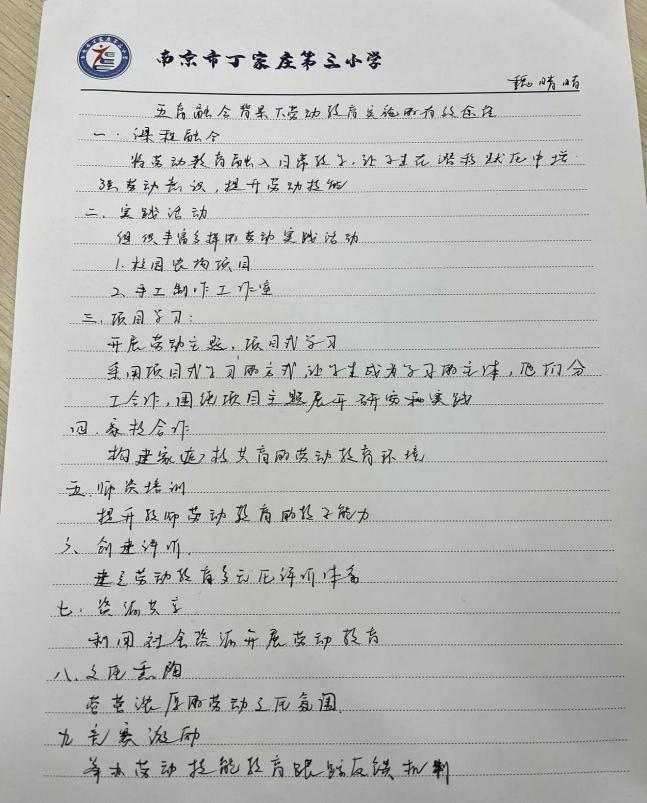 南京市丁家庄第三小学
魏晴晴
五育融合背景下劳动教育实施的有效途径
一.课程融合
将劳动教育融入日常教学,让学生在潜移默化中增
强劳动意识,提升劳动技能
二.实践活动
组织丰富多样的劳动实践活动
1.校园农构项目
2.手工制作工作室
三.项目学习:
开展劳动主题,项目式学习
采用项目式学习的方式,让学生成为学习的主体,他们分
工合作,围绕项目主题展开研究和实践
四.家校合作
构建家庭校共育的劳动教育环境
五.师资培训
提升教师劳动教育的教学能力
六.创建评价.
建立劳动教育多元化评价体系
七.资源共享
利用社会资源开展劳动教育
八.文化熏陶
营造浓厚的劳动文化氛围.
九竞赛激励
举办劳动技能教育跟踪反馈机制